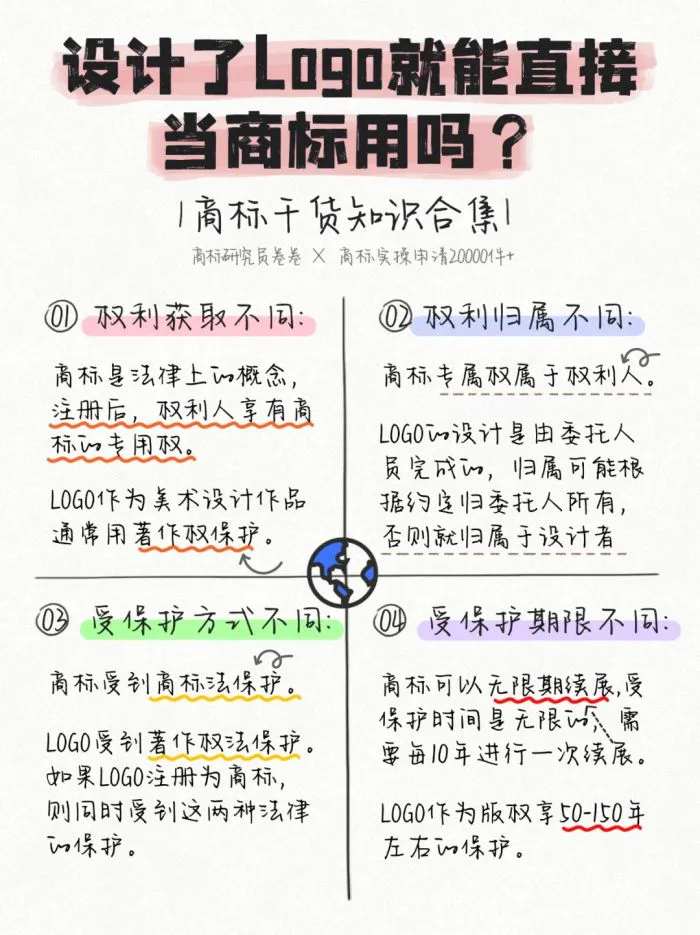 设计了Logo就能直接
当商标用吗？
|商标干货知识合集|
商标研究员卷卷 × 商标实操申请20000件+
01 权利获取不同:
商标是法律上的概念，
注册后，权利人享有商
标的专用权。
LOGO作为美术设计作品
通常用著作权保护。
02 权利归属不同:
商标专属权属于权利人。
LOGO的设计是由委托人
员完成的，归属可能根
据约定归委托人所有，
否则就归属于设计者
03 受保护方式不同:
商标受到商标法保护。
LOGO受到著作权法保护。
如果LOGO注册为商标，
则同时受到这两种法律
的保护。
04 受保护期限不同:
商标可以无限期续展,受
保护时间是无限的，需
要每10年进行一次续展。
LOGO作为版权享50-150年
左右的保护。